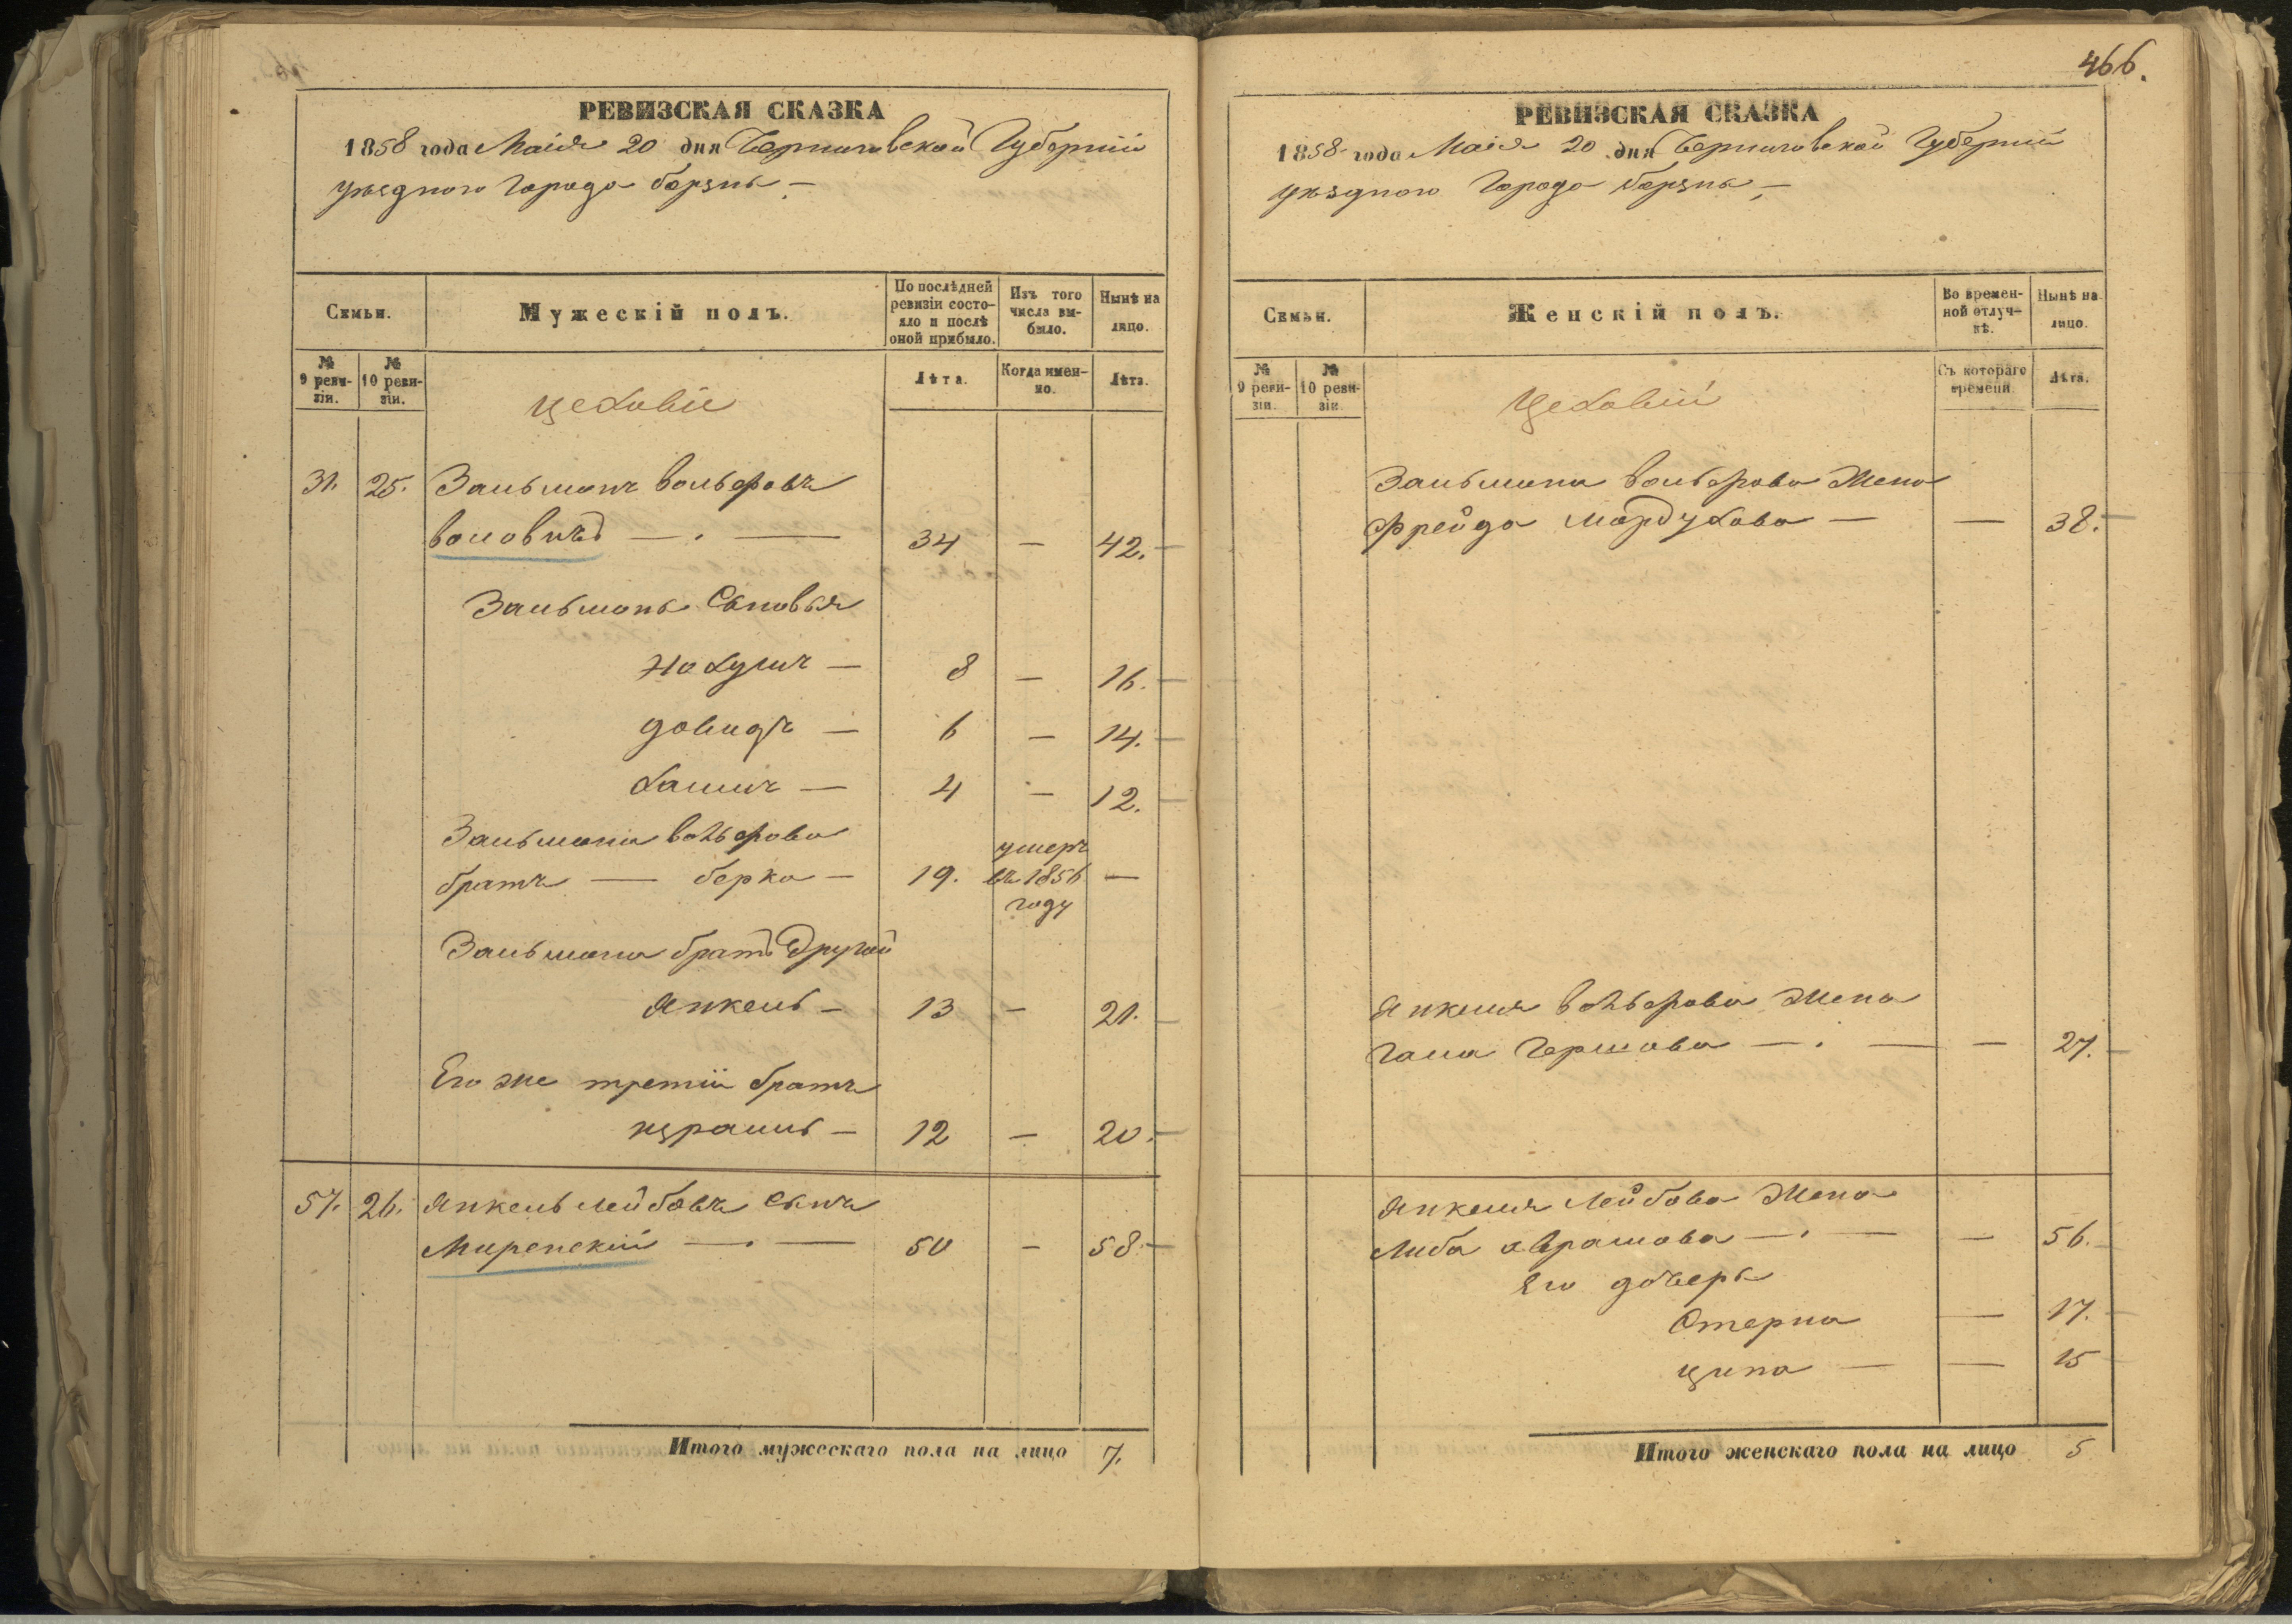 466.
РЕВИЗСКАЯ СКАЗКА
1858 года Маія 20 дня Черниговской Губерніи
уѣзднаго города борзны —
Семьи.
Мужескій полъ.
По послѣдней ревизіи состояло и послѣ оной прибыло.
Изъ того числа выбыло.
Нынѣ на лицо.
№ 9 ревизіи.
№ 10 ревизіи.
Лѣта.
Когда именно.
Лѣта.
цеховіе
31. 25. Зальманъ вольфовъ
воловичъ — . — 34 — 42. —
Зальмана Сыновья
Нахумъ — 8 — 16. —
довидъ — 6 — 14. —
хаимъ — 4 — 12. —
Зальмана вольфова
братъ — берка — 19. умеръ въ 1856 году —
Зальмана братъ Другой
Янкель — 13 — 21. —
Его же третій братъ
израиль — 12 — 20. —
57. 26. Янкель лейбовъ сынъ
Миренскій — . — 50 — 58. —
Итого мужескаго пола на лицо 7.
РЕВИЗСКАЯ СКАЗКА
1858 года Маія 20 дня Черниговской Губерніи
уѣзднаго Города борзны —
Семьи.
Женскій полъ.
Во временной отлучкѣ.
Нынѣ на лицо.
№ 9 ревизіи.
№ 10 ревизіи.
Съ котораго времени.
Лѣта.
Цеховіи
Зальмана вольфова Жена
Фрейда Мордухова — — 38. —
Янкеля вольфова Жена
Гершова — . — — 27. —
Янкеля Лейбова Жена
Либа аврамова — . — — 56. —
Его дочерь
Стерна — 17. —
ципа — — 15 —
Итого женскаго пола на лицо 5